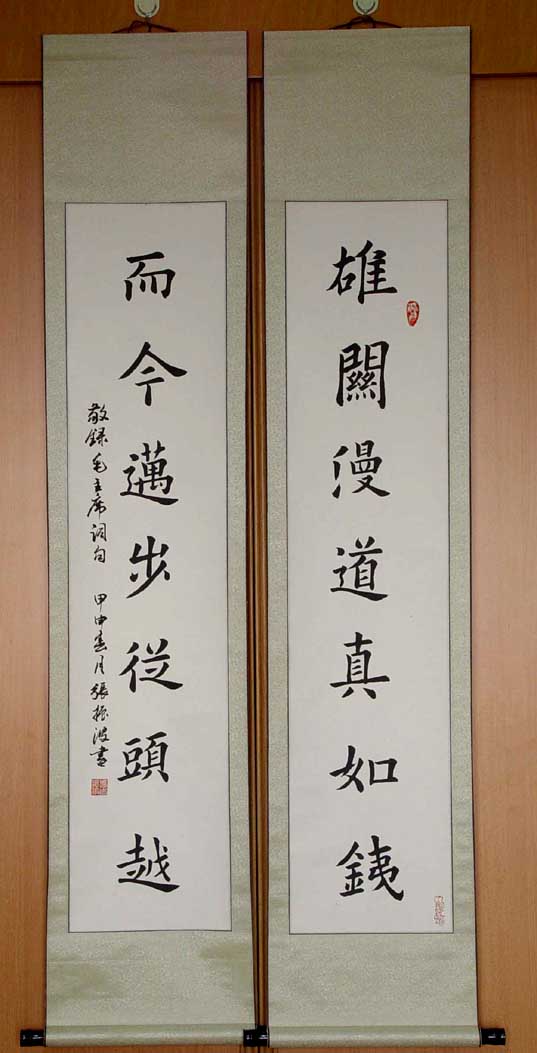 雄關漫道真如銕
而今邁步從頭越
敬録毛主席詞句 甲申春月張振波書